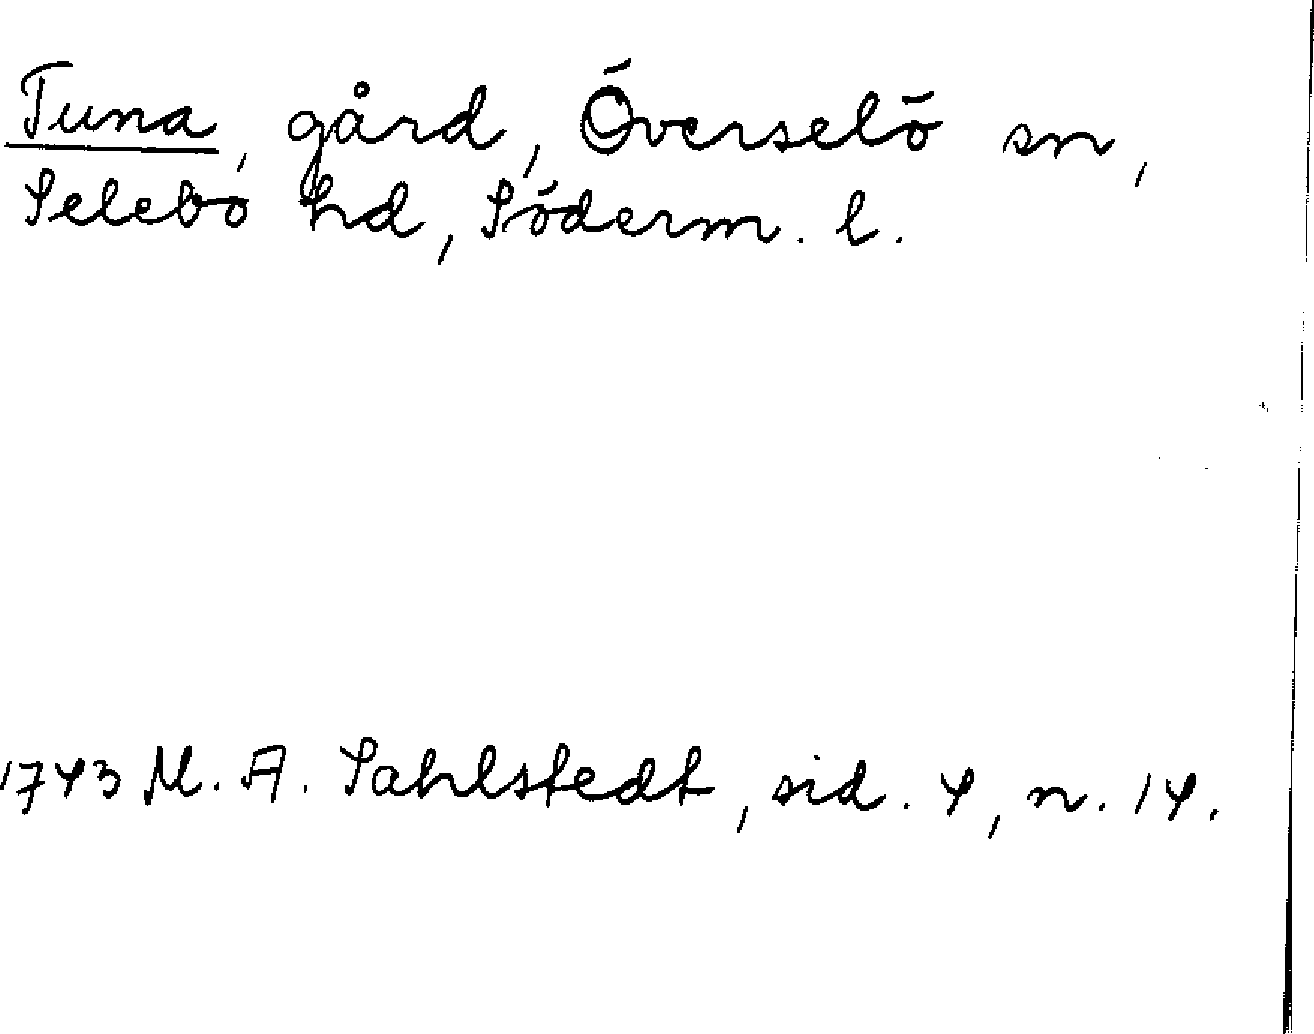 Tuna, gård, Överselö sn,
Selebo hd, Söderm. l.
1743 M. A. Sahlstedt, sid. 4, n. 14.